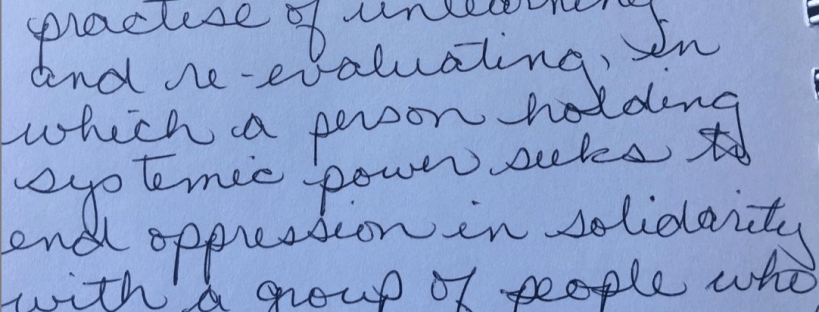 practise of unlearning
and re-evaluating, in
which a person holding
systemic power seeks to
end oppression in solidarity
with a group of people who